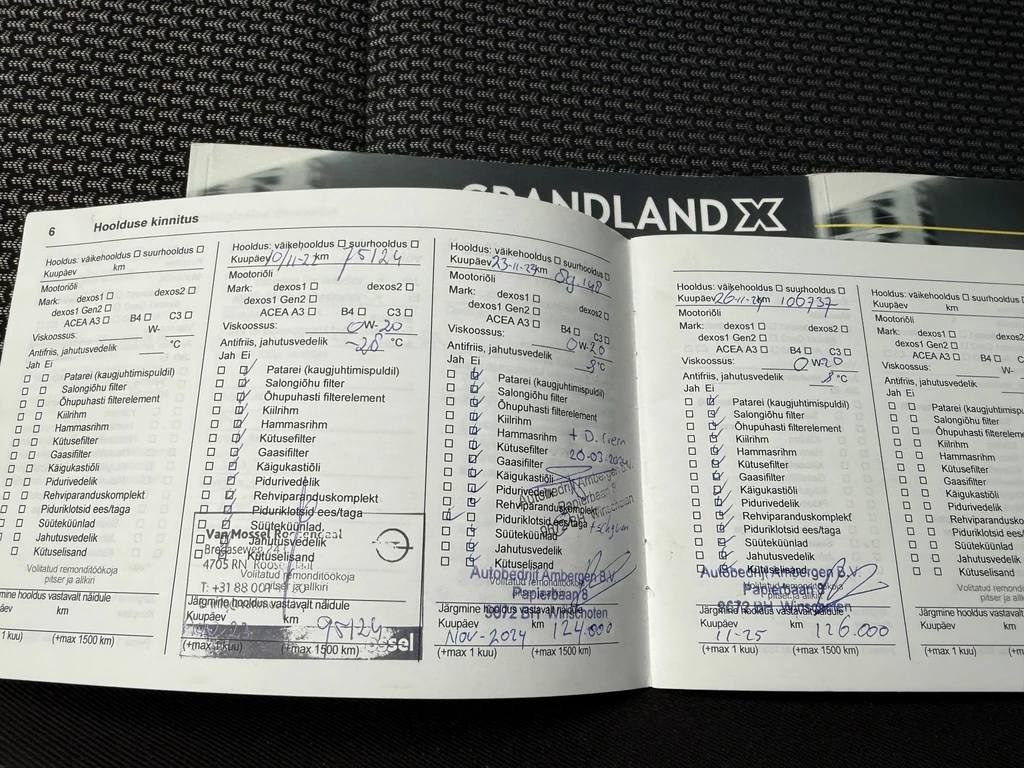 GRANDLAND X
6 Hoolduse kinnitus
Hooldus: väikehooldus ☐ suurhooldus ☐
Kuupäev km
Mootoriõli
Mark: dexos1 ☐ dexos2 ☐
dexos1 Gen2 ☐
ACEA A3 ☐ B4 ☐ C3 ☐
Viskoossus: W-
Antifriis, jahutusvedelik °C
Jah Ei
Patarei (kaugjuhtimispuldil)
Salongiõhu filter
Õhupuhasti filterelement
Kiilrihm
Hammasrihm
Kütusefilter
Gaasifilter
Käigukastiõli
Pidurivedelik
Rehviparanduskomplekt
Piduriklotsid ees/taga
Süüteküünlad
Jahutusvedelik
Kütuselisand
Volitatud remonditöökoja
pitser ja allkiri
mine hooldus vastavalt näidule
äev km
1 kuu) (+max 1500 km)
Hooldus: väikehooldus ☐ suurhooldus ☐
Kuupäev 10/11-22 km 75124
Mootoriõli
Mark: dexos1 ☐ dexos2 ☐
dexos1 Gen2 ☐
ACEA A3 ☐ B4 ☐ C3 ☐
Viskoossus: 0W-20
Antifriis, jahutusvedelik -28 °C
Jah Ei
Patarei (kaugjuhtimispuldil)
Salongiõhu filter
Õhupuhasti filterelement
Kiilrihm
Hammasrihm
Kütusefilter
Gaasifilter
Käigukastiõli
Pidurivedelik
Rehviparanduskomplekt
Piduriklotsid ees/taga
Süüteküünlad
Van Mossel Roosendaal
Jahutusvedelik
Kütuselisand
4705 RN
Volitatud remonditöökoja
pitser ja allkiri
T: +31 88 00
Järgmine hooldus vastavalt näidule
Kuupäev km 95124
(+max 1 kuu) (+max 1500 km)
Hooldus: väikehooldus ☐ suurhooldus ☐
Kuupäev 23-11-23 km 89.148
Mootoriõli
Mark: dexos1 ☐ dexos2 ☐
dexos1 Gen2 ☐
ACEA A3 ☐ B4 ☐ C3 ☐
Viskoossus: 0W-20
Antifriis, jahutusvedelik °C
Jah Ei
Patarei (kaugjuhtimispuldil)
Salongiõhu filter
Õhupuhasti filterelement
Kiilrihm
Hammasrihm + D. riem
Kütusefilter 20-03-2024
Gaasifilter
Käigukastiõli
Pidurivedelik
Rehviparanduskomplekt
Piduriklotsid ees/taga
Süüteküünlad
Jahutusvedelik
Kütuselisand
Autobedrijf Ambergen B.V.
Papierbaan 8
9672 BH Winschoten
Autobedrijf Ambergen B.V.
Volitatud remonditöökoja
Papierbaan 8
pitser ja allkiri
9672 BH Winschoten
Järgmine hooldus vastavalt näidule
Kuupäev NOV-2024 km 124.000
(+max 1 kuu) (+max 1500 km)
Hooldus: väikehooldus ☐ suurhooldus ☐
Kuupäev 26-11-24 km 106737
Mootoriõli
Mark: dexos1 ☐ dexos2 ☐
dexos1 Gen2 ☐
ACEA A3 ☐ B4 ☐ C3 ☐
Viskoossus: 0W-20
Antifriis, jahutusvedelik °C
Jah Ei
Patarei (kaugjuhtimispuldil)
Salongiõhu filter
Õhupuhasti filterelement
Kiilrihm
Hammasrihm
Kütusefilter
Gaasifilter
Käigukastiõli
Pidurivedelik
Rehviparanduskomplekt
Piduriklotsid ees/taga
Süüteküünlad
Jahutusvedelik
Kütuselisand
Autobedrijf Ambergen B.V.
Volitatud remonditöökoja
Papierbaan 8
pitser ja allkiri
9672 BH Winschoten
Järgmine hooldus vastavalt näidule
Kuupäev 11-25 km 126.000
(+max 1 kuu) (+max 1500 km)
Hooldus: väikehooldus ☐ suurhooldus
Kuupäev km
Mootoriõli
Mark: dexos1 ☐ dexos2
dexos1 Gen2 ☐
ACEA A3 ☐ B4 ☐ C3
Viskoossus: W-
Antifriis, jahutusvedelik
Jah Ei
Patarei (kaugjuhtimispul
Salongiõhu filter
Õhupuhasti filtereleme
Kiilrihm
Hammasrihm
Kütusefilter
Gaasifilter
Käigukastiõli
Pidurivedelik
Rehviparandusko
Piduriklotsid ees/
Süüteküünlad
Jahutusvedelik
Kütuselisand
Volitatud remond
pitser ja a
Järgmine hooldus vastavalt
Kuupäev
(+max 1 kuu) (+m